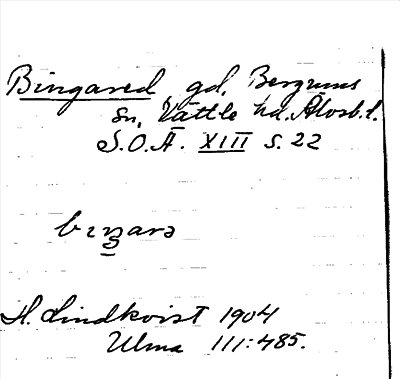 Bingared gd, Bergums
sn, Vättle hd. Älvsb. l.
S.O.Ä. XIII s. 22
bıŋarə
H. Lindkvist 1904
Ulma 111:485.